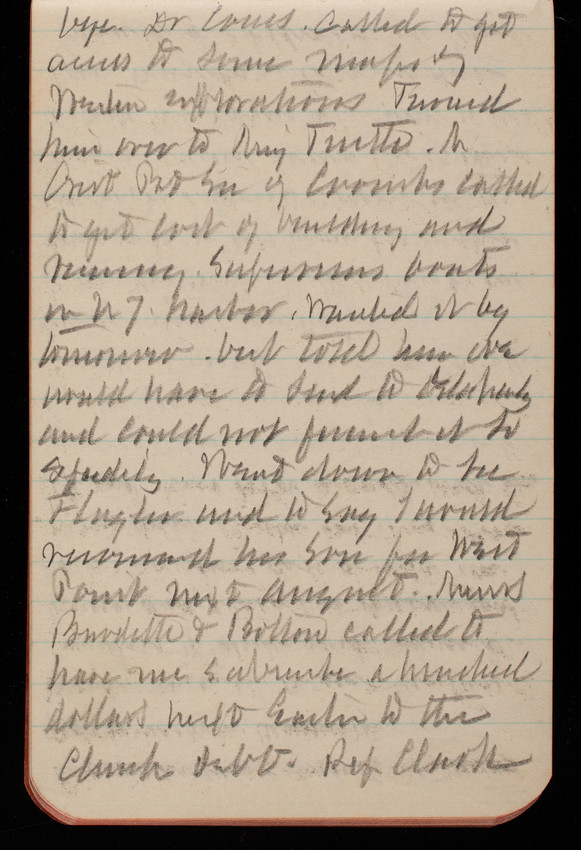 Dr Coues. called to get
access to some maps of
Western explorations Turned
him over to Tuttle. Mr
of Coombs called
to get cost of building and
running Supervisors boats
in N Y harbor. Wanted it by
tomorrow. but told him we
would have to send to
and could not furnish it so
speedily. Went down to see
Flagler and to say I would
recommend his son for West
Point next August. Messrs
Burdette & Bolton called to
have me subscribe a hundred
dollars next Easter to the
Church debt. Rep Clark